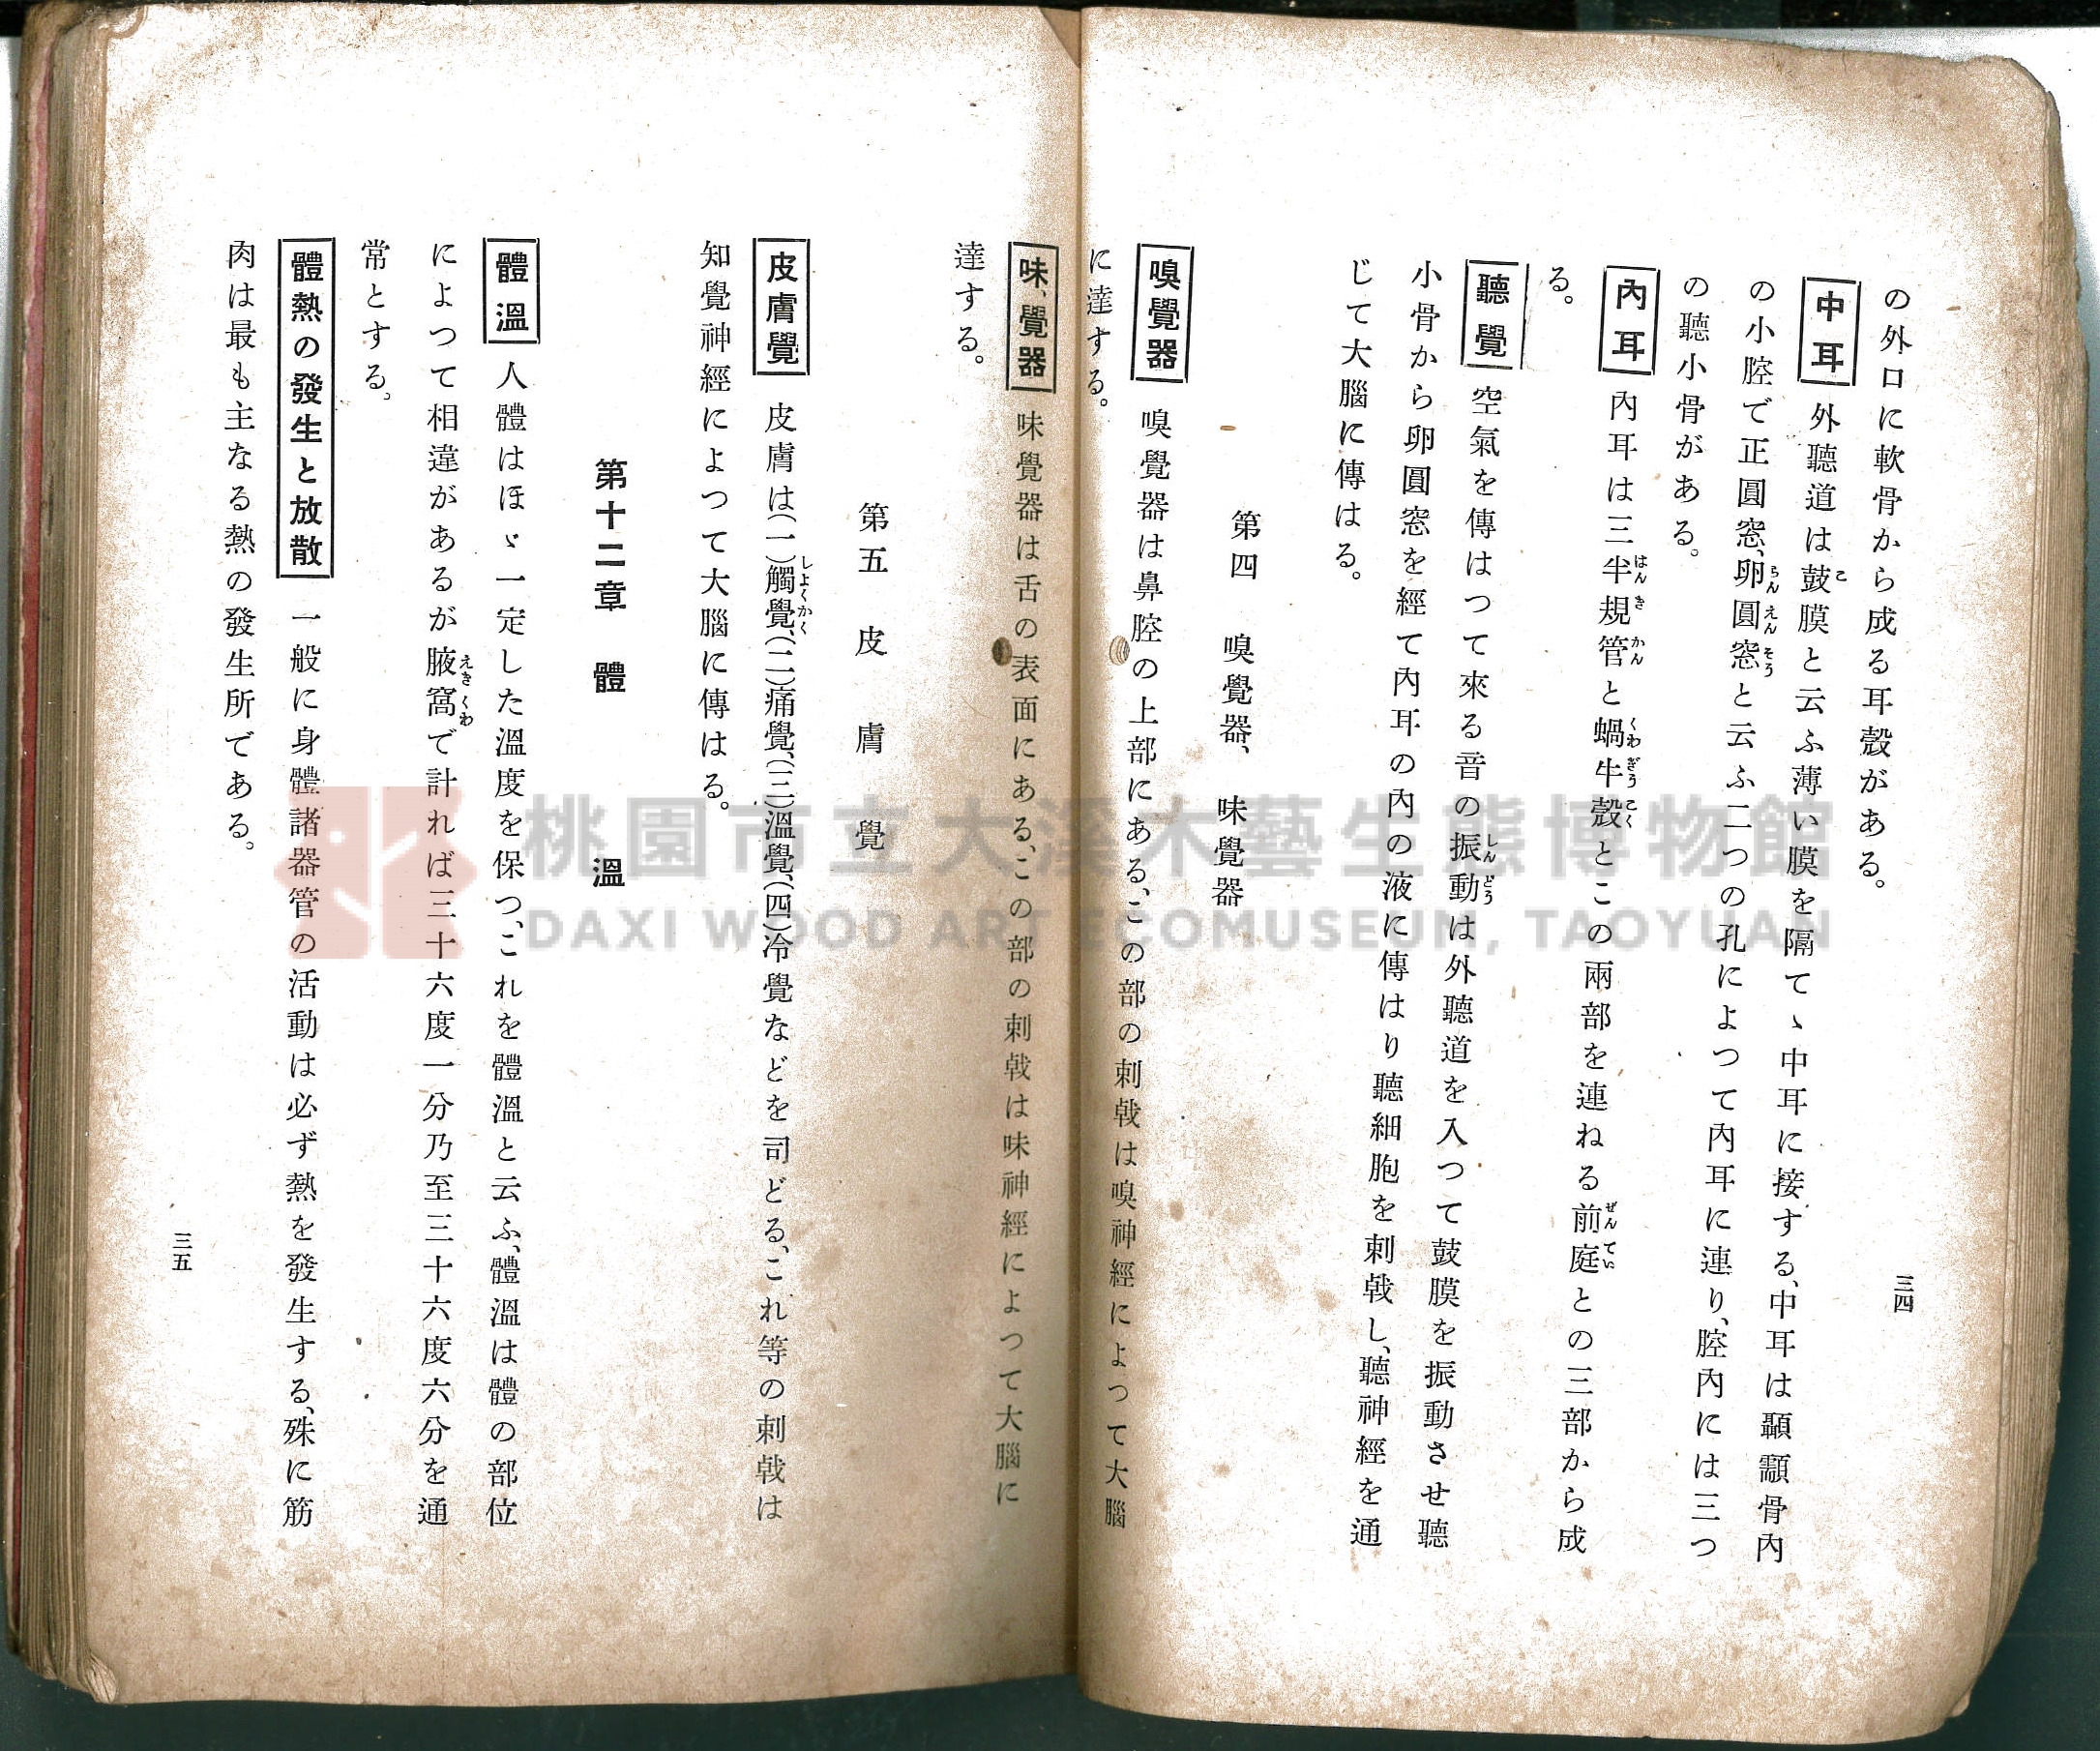 三四
の外口に軟骨から成る耳殼がある。
中耳 外聽道は鼓膜と云ふ薄い膜を隔てゝ中耳に接する、中耳は顳顬骨內
の小腔で正圓窓、卵圓窓と云ふ二つの孔によつて內耳に連り、腔內には三つ
の聽小骨がある。
內耳 內耳は三半規管と蝸牛殼とこの兩部を連ねる前庭との三部から成
る。
聽覺 空氣を傳はつて來る音の振動は外聽道を入つて鼓膜を振動させ聽
小骨から卵圓窓を經て內耳の內の液に傳はり聽細胞を刺戟し、聽神經を通
じて大腦に傳はる。
第四 嗅覺器、味覺器
嗅覺器 嗅覺器は鼻腔の上部にある、この部の刺戟は嗅神經によつて大腦
に達する。
味、覺器 味覺器は舌の表面にある、この部の刺戟は味神經によつて大腦に
達する。
第五 皮膚覺
皮膚覺 皮膚は(一)觸覺、(二)痛覺、(三)溫覺、(四)冷覺などを司どる、これ等の刺戟は
知覺神經によつて大腦に傳はる。
第十二章 體溫
體溫 人體はほゞ一定した溫度を保つ、これを體溫と云ふ、體溫は體の部位
によつて相違があるが腋窩で計れば三十六度一分乃至三十六度六分を通
常とする。
體熱の發生と放散 一般に身體諸器管の活動は必ず熱を發生する、殊に筋
肉は最も主なる熱の發生所である。
三五
桃園市立大溪木藝生態博物館
DAXI WOOD ART ECOMUSEUM, TAOYUAN